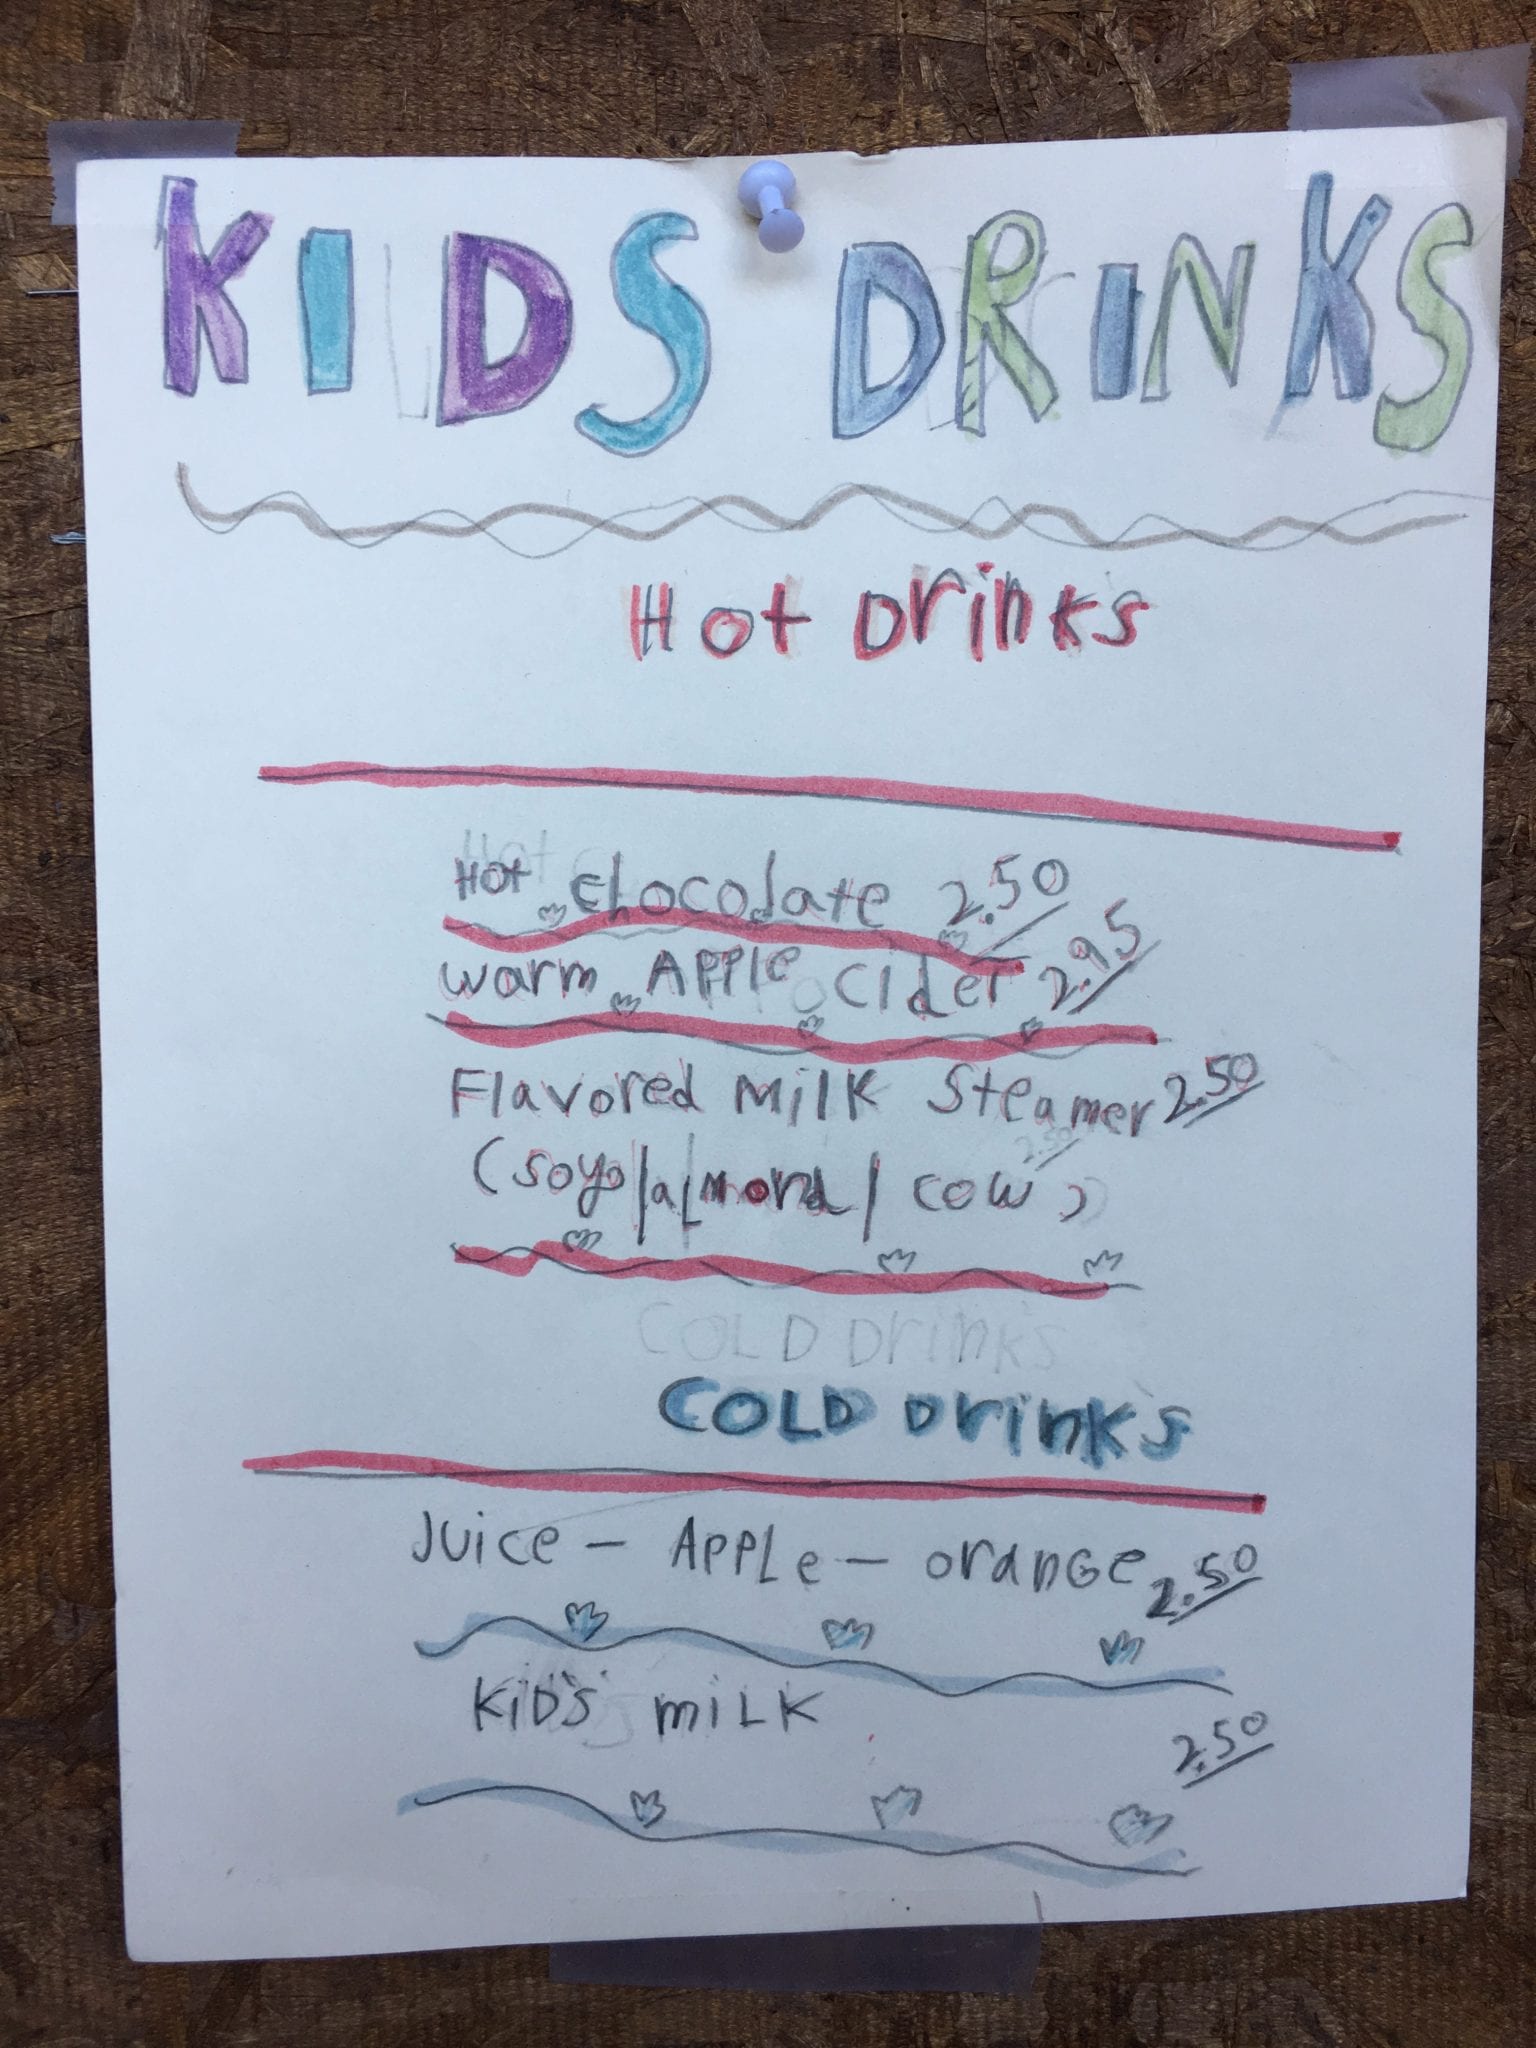 KIDS DRINKS
Hot Drinks
Hot chocolate 2.50
warm Apple cider 2.95
Flavored Milk Steamer 2.50
(soy/almond/cow)
COLD Drinks
COLD Drinks
Juice - Apple - orange 2.50
Kid's milk
2.50